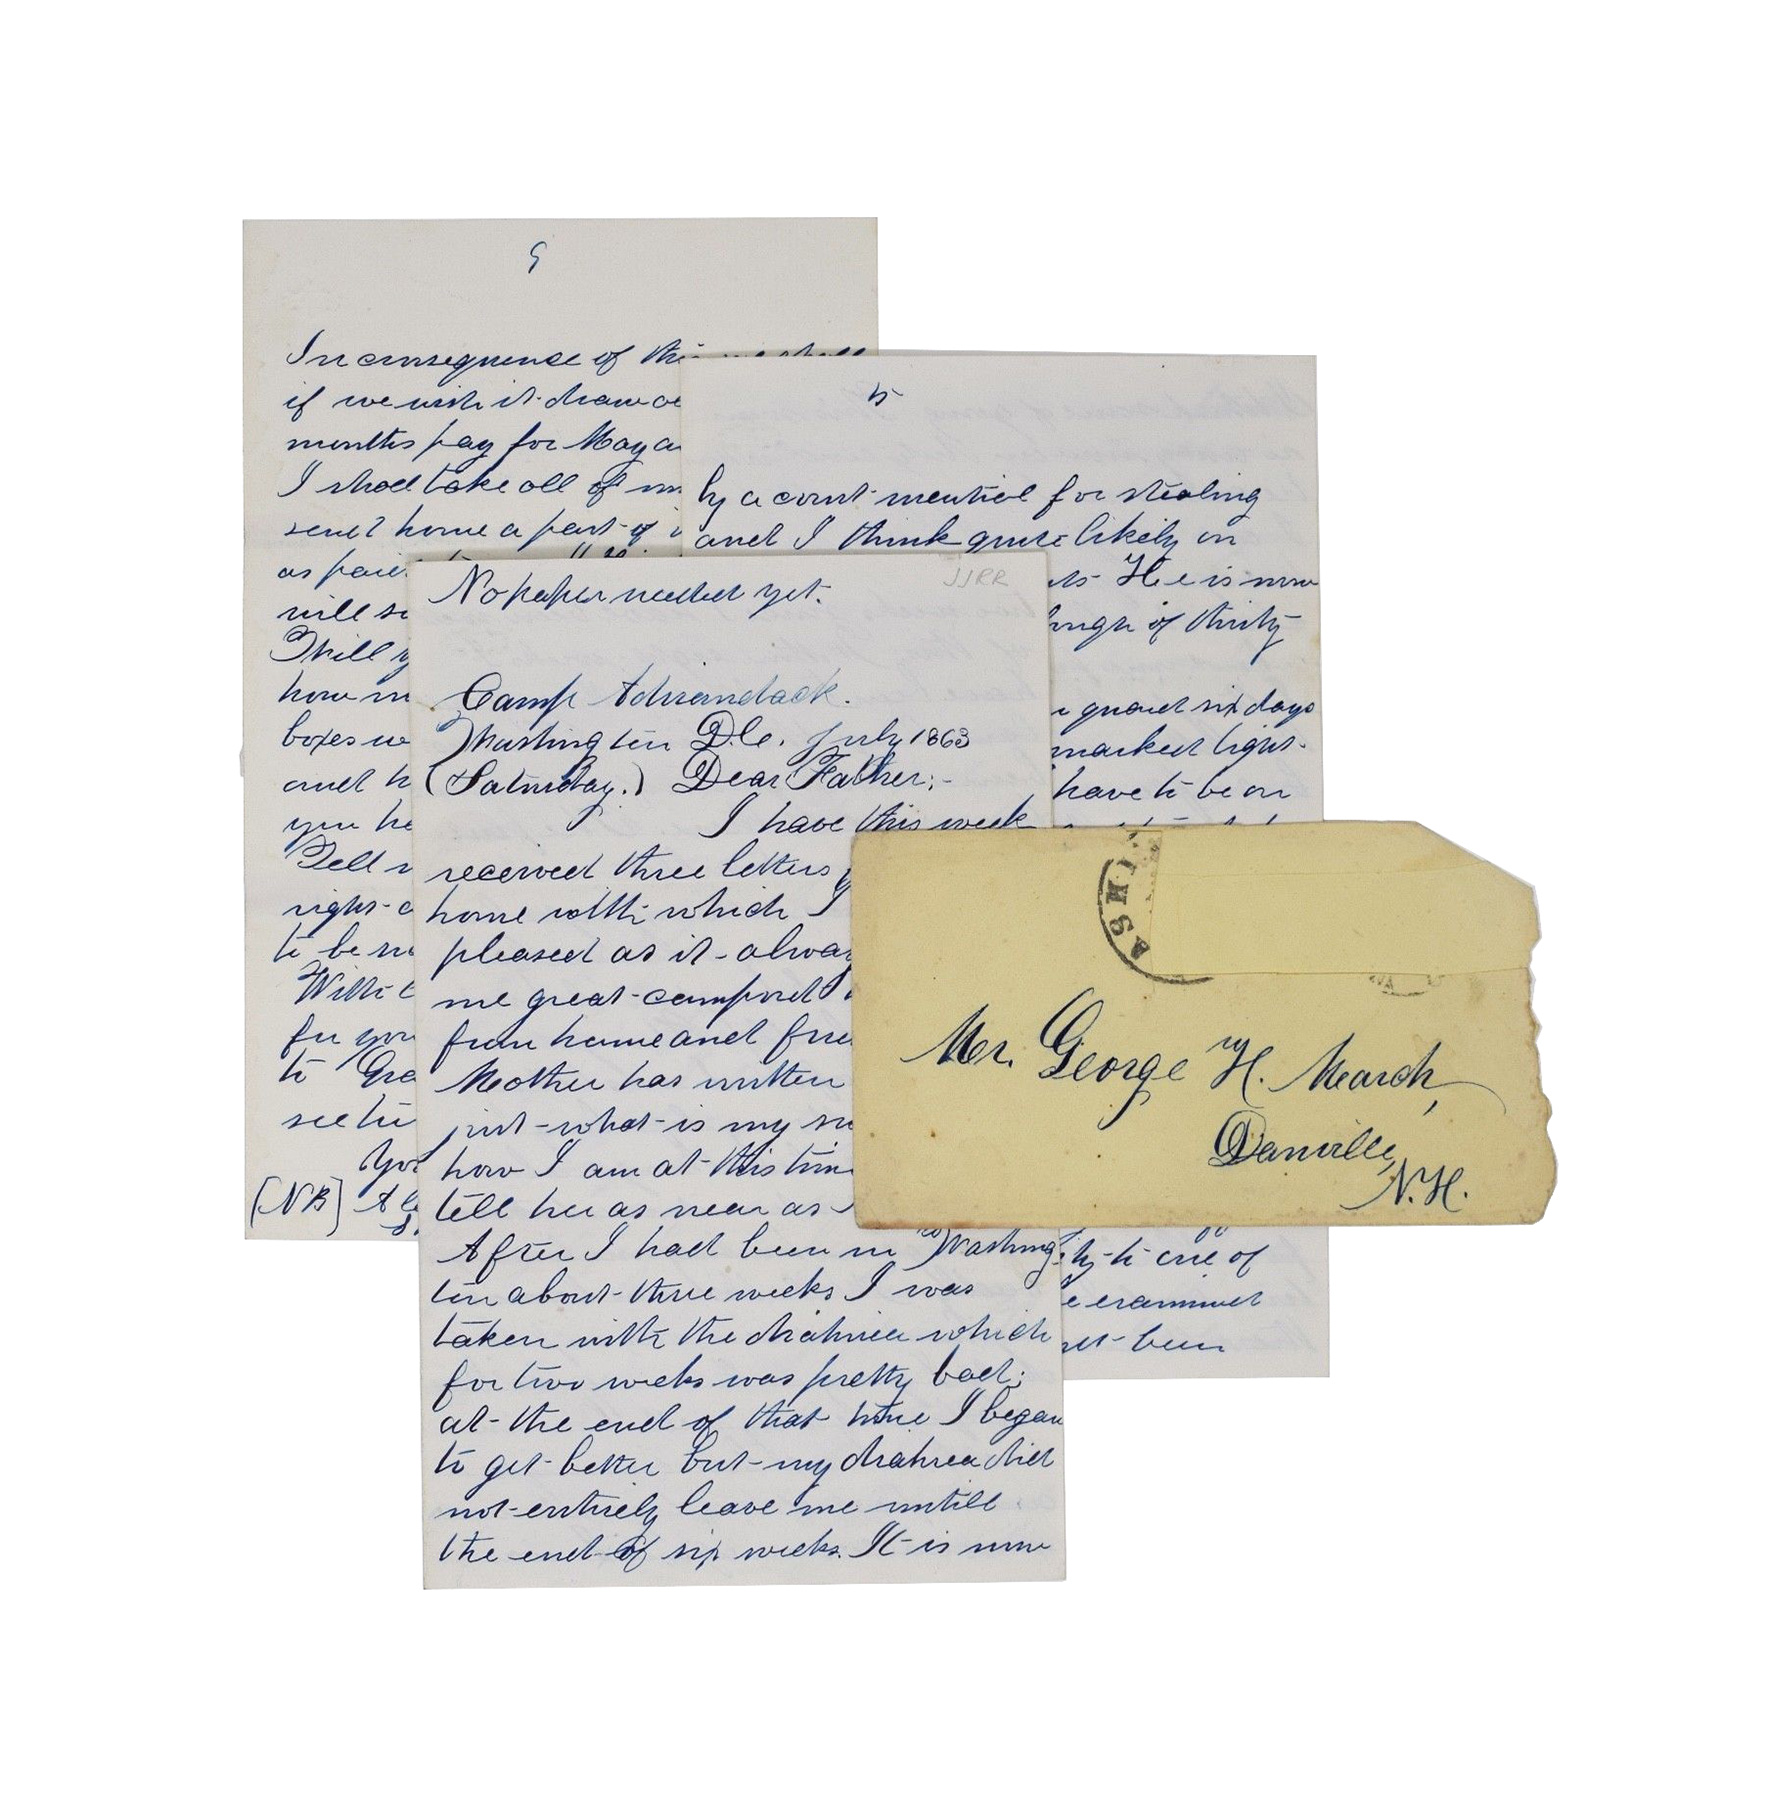 9
In consequence of this we shall
if we wish it draw
months pay for May
I shall take all of
send home a part of
as
will
Will
how
boxes
and
you
Tell
right
to be
With
for you
to Gra
see
You
(NB)
5
by a court mentiel for stealing
and I think quite likely on
He is now
of thirty
guard six days
market light-
have to be on
to one of
examined
been
No paper needed yet.
JJRR
Camp Adirandack.
Washington D.C. July 1863
(Saturday.) Dear Father;-
I have this week
received three letters
home with which I
pleased as it alway
me great comford
from home and frie
Mother has written
just what is my
how I am at this time
tell her as near as
After I had been in Washing
ton about three weeks I was
taken with the diahrea which
for two weeks was pretty bad;
at the end of that time I began
to get better but my diahrea did
not entirely leave me untill
the end of six weeks. It is now
ASHIN
Mr. George W. H. March,
Danville,
N.H.